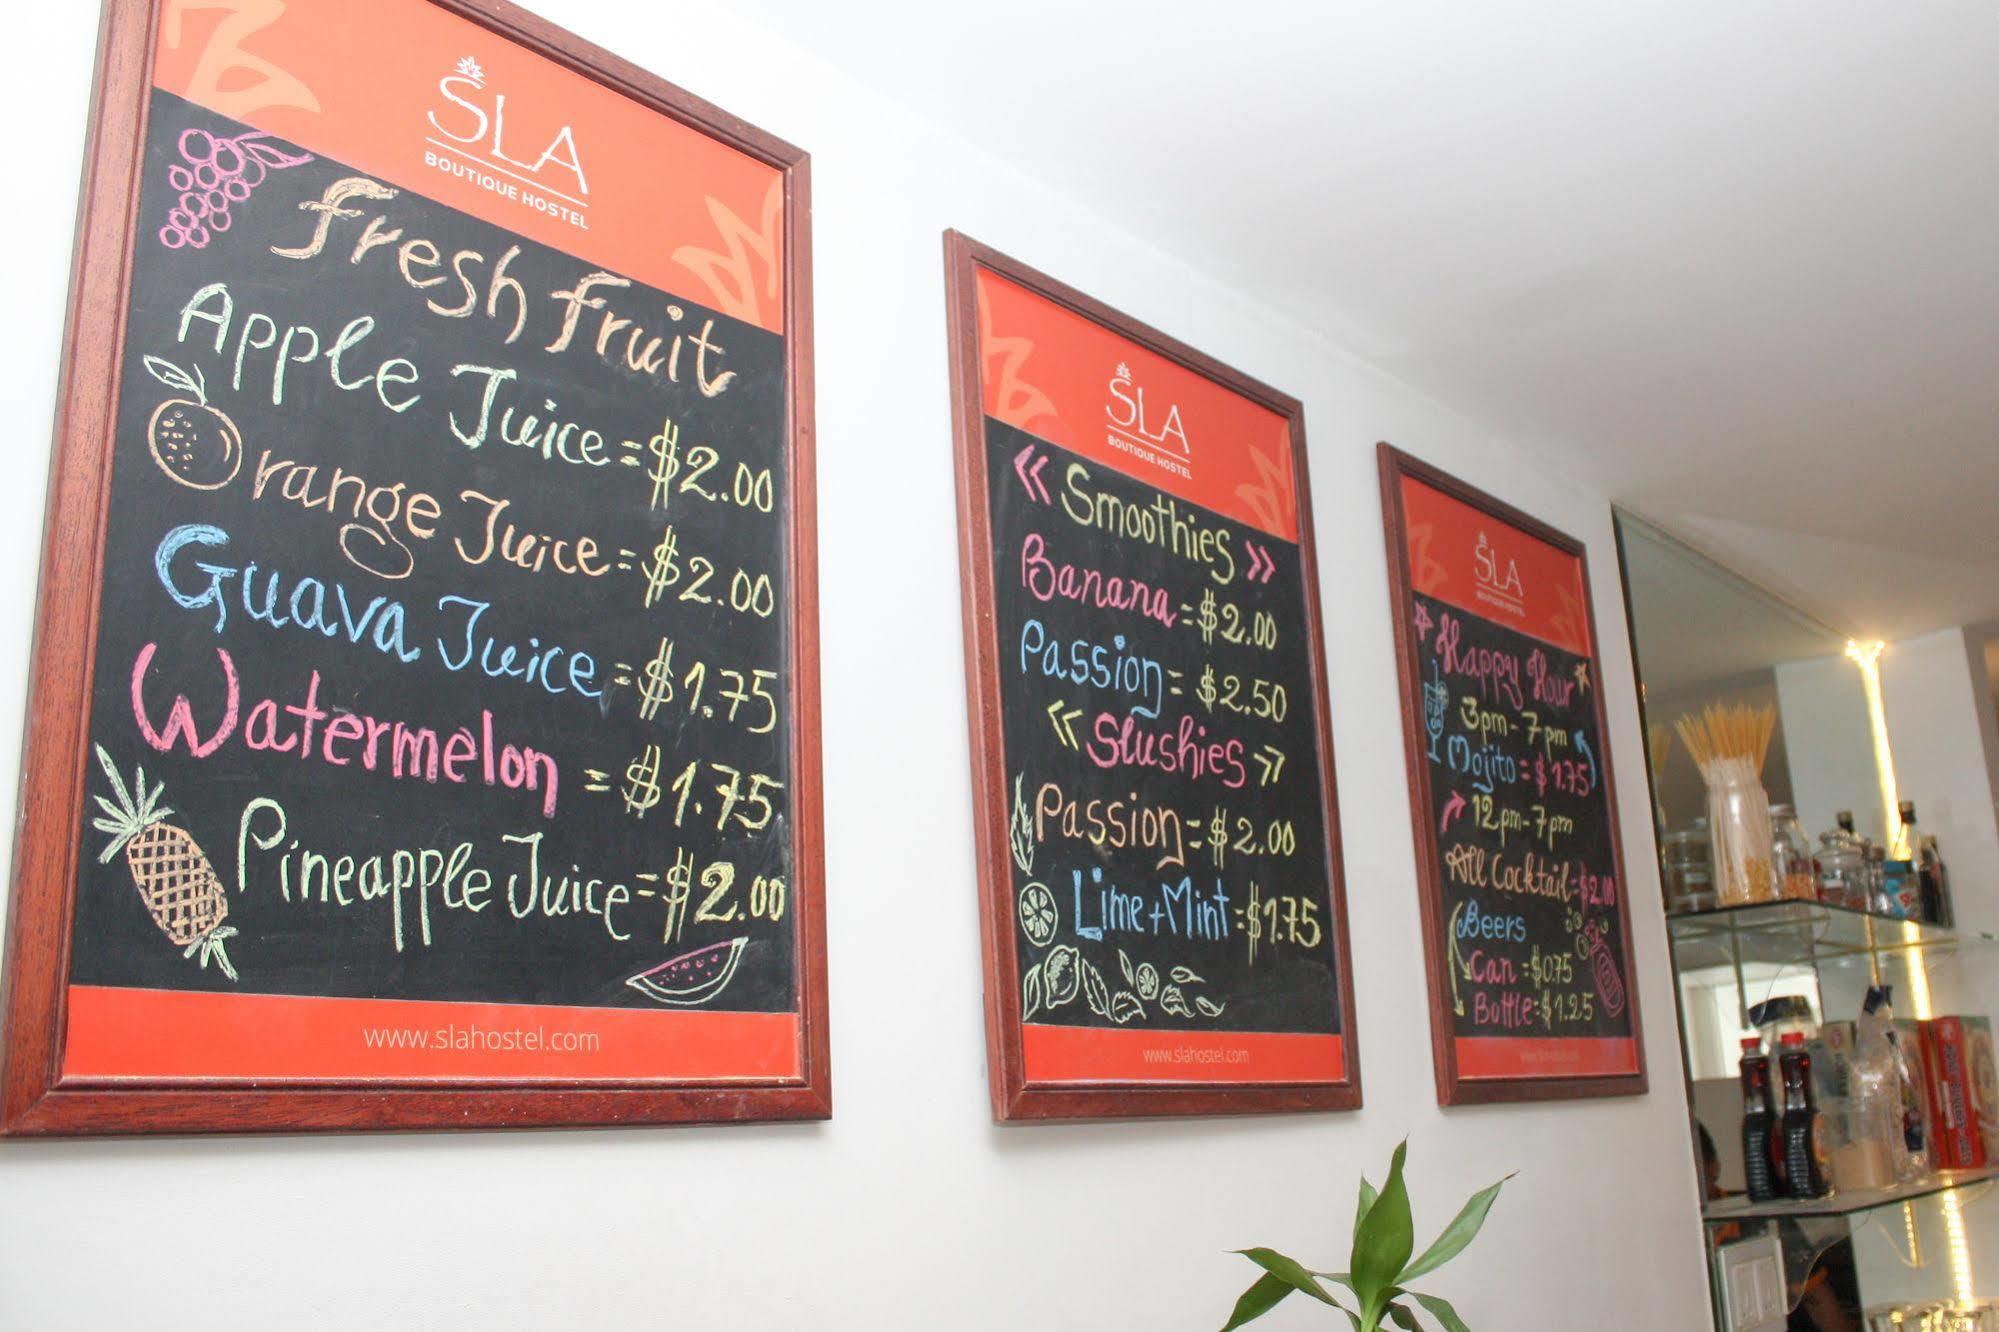 SLA
BOUTIQUE HOSTEL
Fresh Fruit
Apple Juice = $2.00
Orange Juice = $2.00
Guava Juice = $1.75
Watermelon = $1.75
Pineapple Juice = $2.00
www.slahostel.com
SLA
BOUTIQUE HOSTEL
« Smoothies »
Banana = $2.00
Passion = $2.50
« Slushies »
Passion = $2.00
Lime + Mint = $1.75
www.slahostel.com
SLA
BOUTIQUE HOSTEL
Happy Hour
3pm - 7pm
Mojito = $1.75
12pm - 7pm
All Cocktail = $2.00
Beers
Can = $0.75
Bottle = $1.25
www.slahostel.com